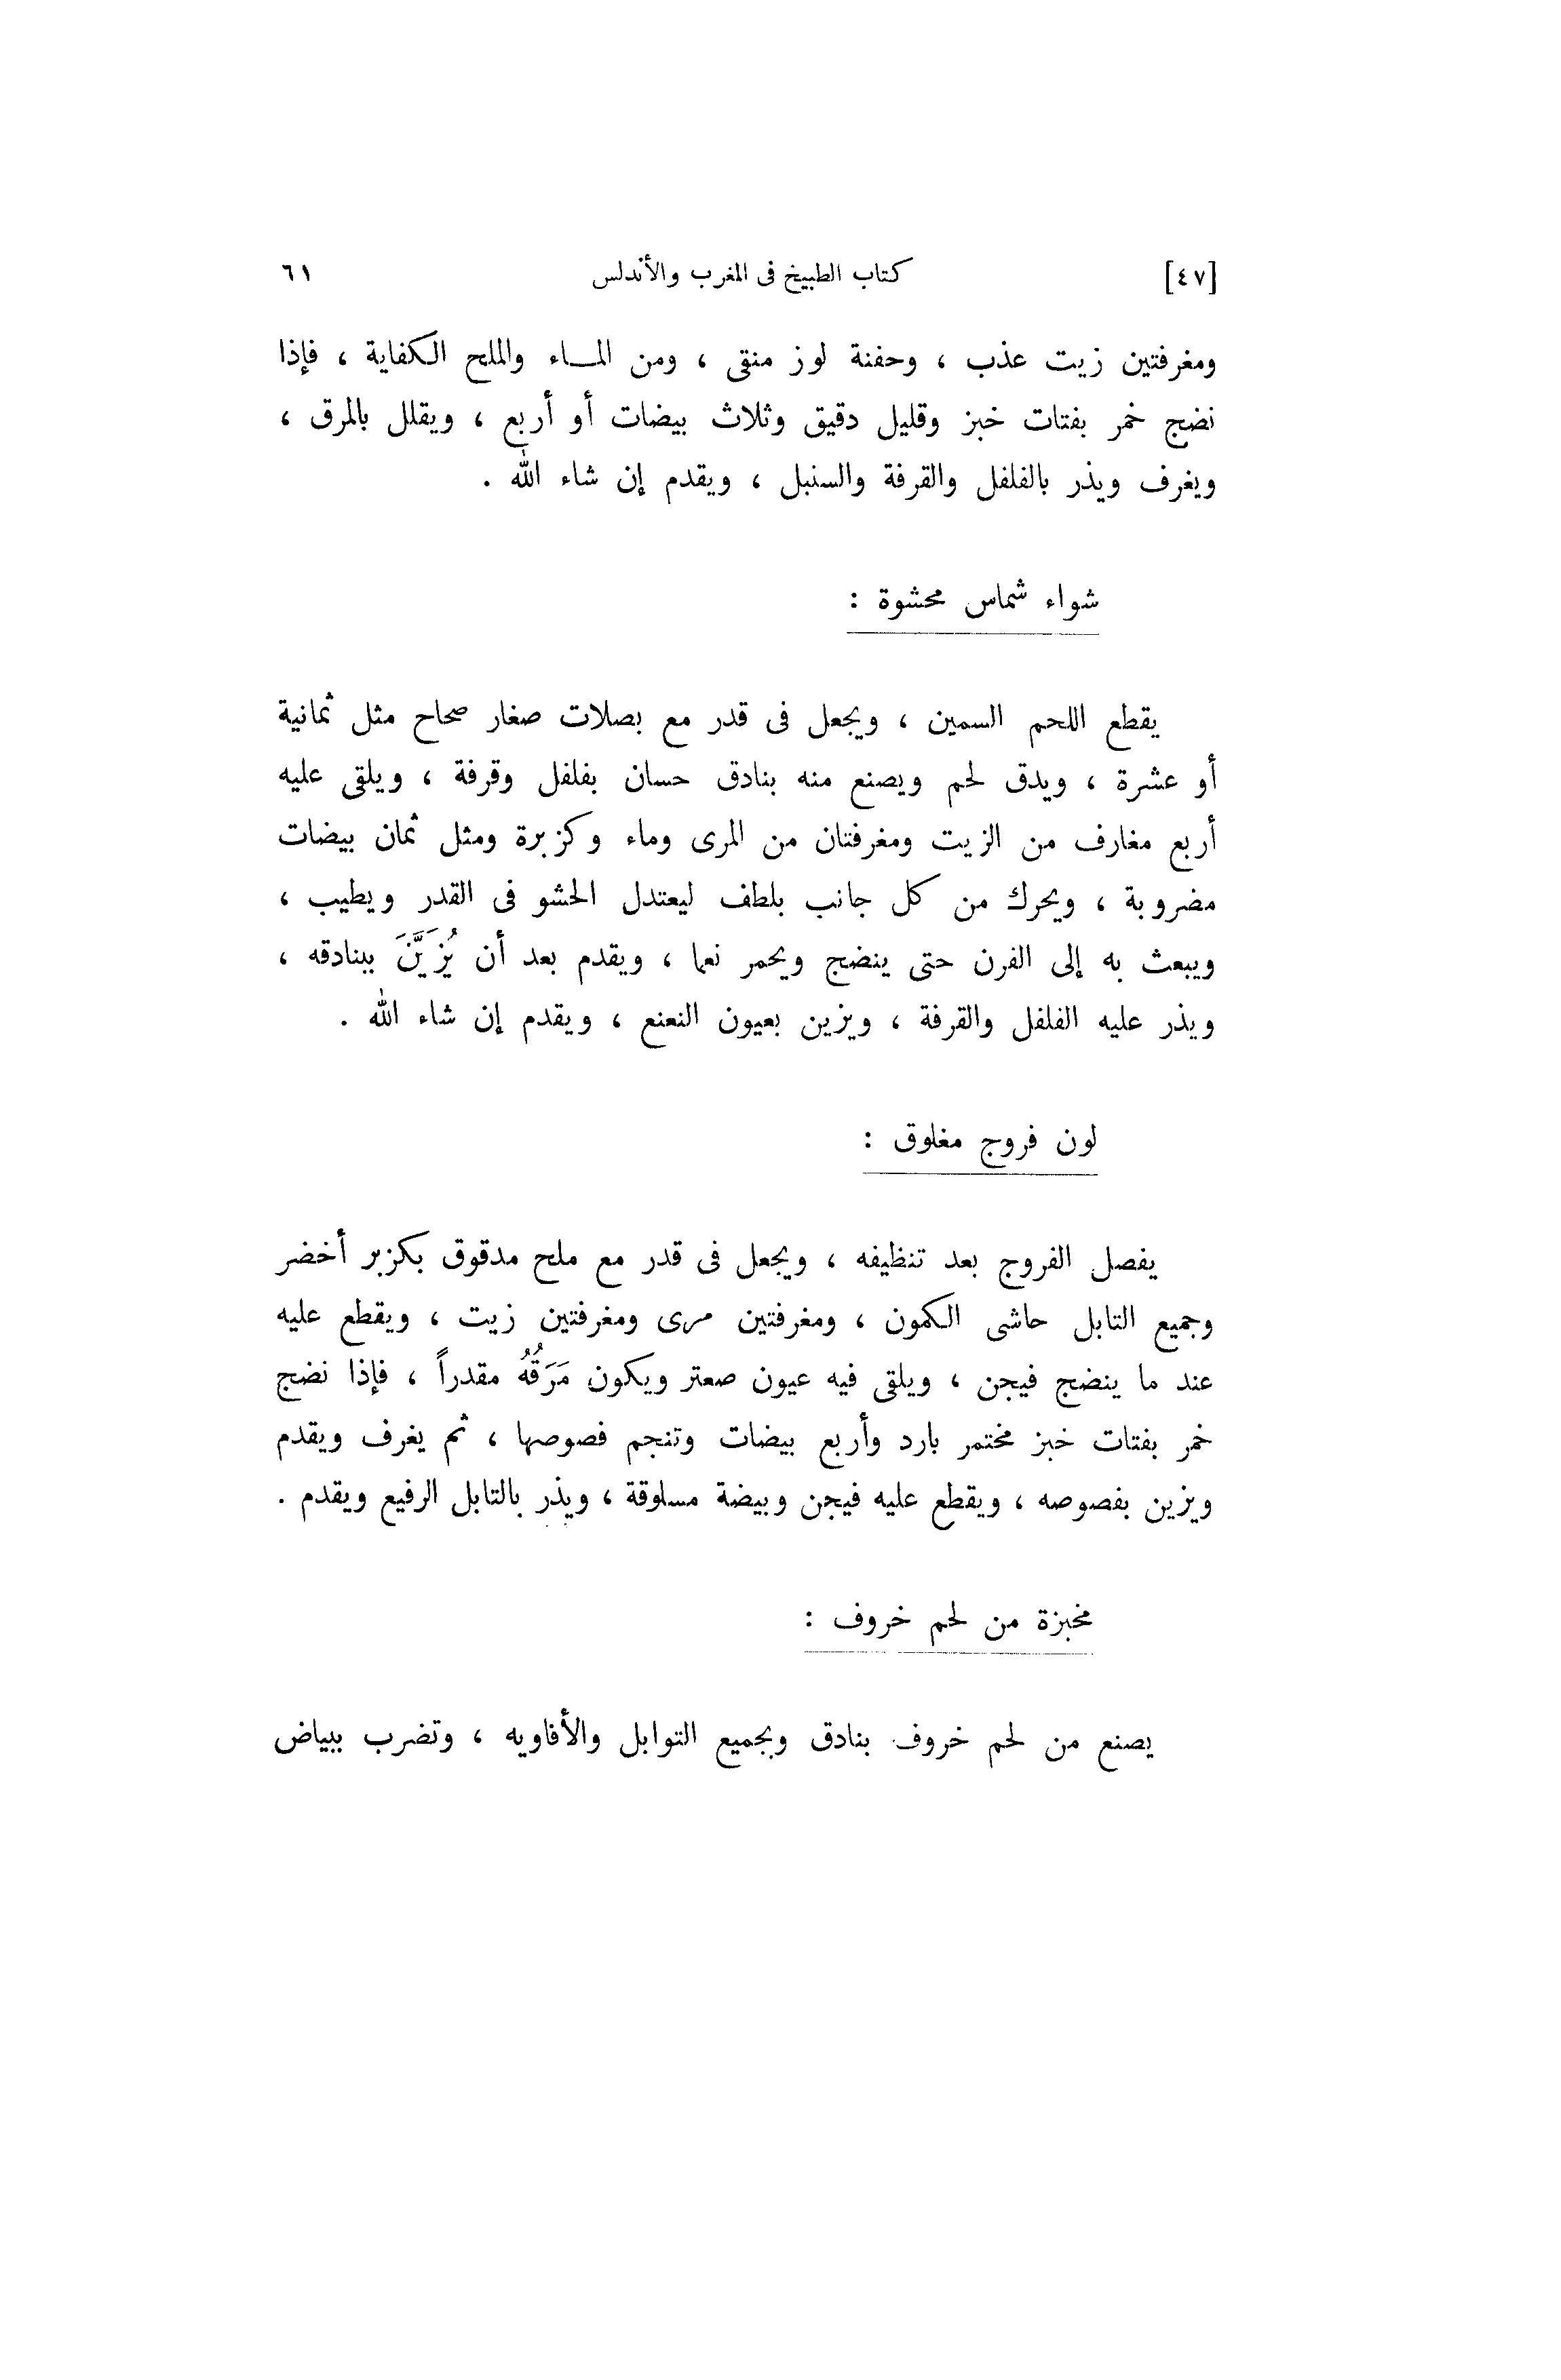 [٤٧] كتاب الطبيخ فى المغرب والأندلس ٦١
ومغرفتين زيت عذب ، وحفنة لوز منقى ، ومن المـــاء والملح الكفاية ، فإذا
نضج خمر بفتات خبز وقليل دقيق وثلاث بيضات أو أربع ، ويقلل بالمرق ،
ويغرف ويذر بالفلفل والقرفة والسنبل ، ويقدم إن شاء الله .
شواء شماس محشوة :
يقطع اللحم السمين ، ويجعل فى قدر مع بصلات صغار صحاح مثل ثمانية
أو عشرة ، ويدق لحم ويصنع منه بنادق حسان بفلفل وقرفة ، ويلقى عليه
أربع مغارف من الزيت ومغرفتان من المرى وماء وكزبرة ومثل ثمان بيضات
مضروبة ، ويحرك من كل جانب بلطف ليعتدل الحشو فى القدر ويطيب ،
ويبعث به إلى الفرن حتى ينضج ويحمر نعما ، ويقدم بعد أن يُزَيَّنَ ببنادقه ،
ويذر عليه الفلفل والقرفة ، ويزين بعيون النعنع ، ويقدم إن شاء الله .
لون فروج مغلوق :
يفصل الفروج بعد تنظيفه ، ويجعل فى قدر مع ملح مدقوق بكزبر أخضر
وجميع التابل حاشى الكمون ، ومغرفتين مرى ومغرفتين زيت ، ويقطع عليه
عند ما ينضج فيجن ، ويلقى فيه عيون صعتر ويكون مَرَقُهُ مقدراً ، فإذا نضج
خمر بفتات خبز مختمر بارد وأربع بيضات وتنجم فصوصها ، ثم يغرف ويقدم
ويزين بفصوصه ، ويقطع عليه فيجن وبيضة مسلوقة ، ويذر بالتابل الرفيع ويقدم .
مخبزة من لحم خروف :
يصنع من لحم خروف بنادق وبجميع التوابل والأفاويه ، وتضرب ببياض